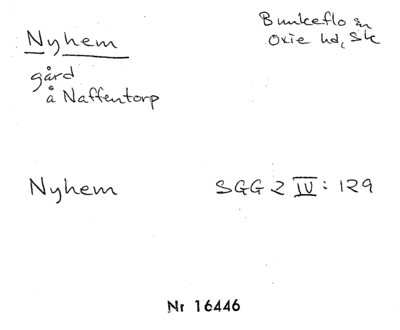 Nyhem
Bunkeflo sn
Oxie hd, Sk
gård
å Naffentorp
Nyhem
SGG 2 IV: 129
Nr 16446